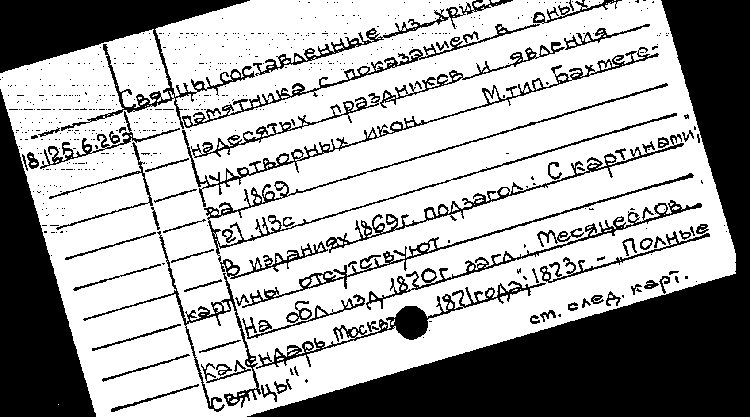 Святцы, составленные из
памятника, с показанием в оных
надесятых праздников и явления
чудотворных икон. М, тип. Бахмете-
18.125.6.263
за 1869.
[2], 113с.
В изданиях 1869г. подзагол.: „С картинами",
картины отсутствуют.
На обл. изд. 1870г. загл.: „Месяцеслов.
Календарь. 1871года"; 1873г. – „Полные
святцы".
ст. след. карт.